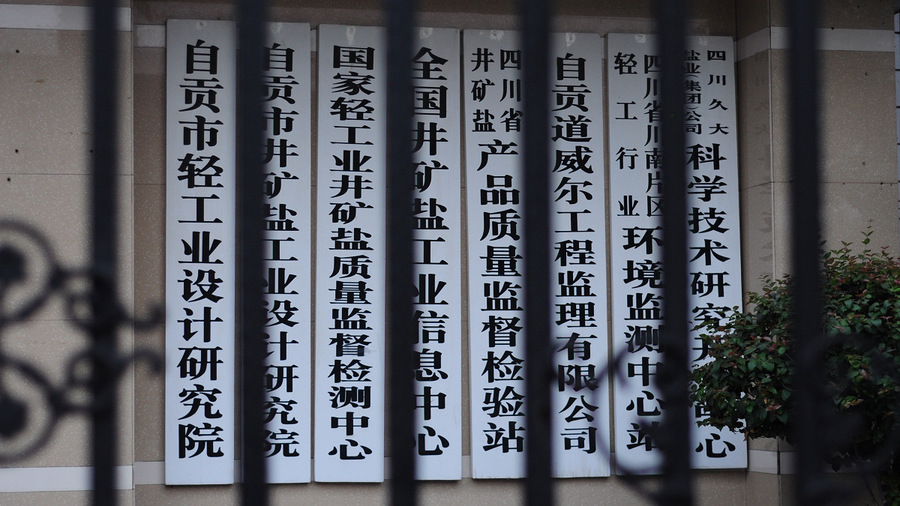 自贡市轻工业设计研究院
自贡市井矿盐工业设计研究院
国家轻工业井矿盐质量监督检测中心
全国井矿盐工业信息中心
四川省
井矿盐
产品质量监督检验站
自贡道威尔工程监理有限公司
四川省川南片区
轻工行业
环境监测中心站
四川久大
盐业(集团)公司
科学技术研究开发中心